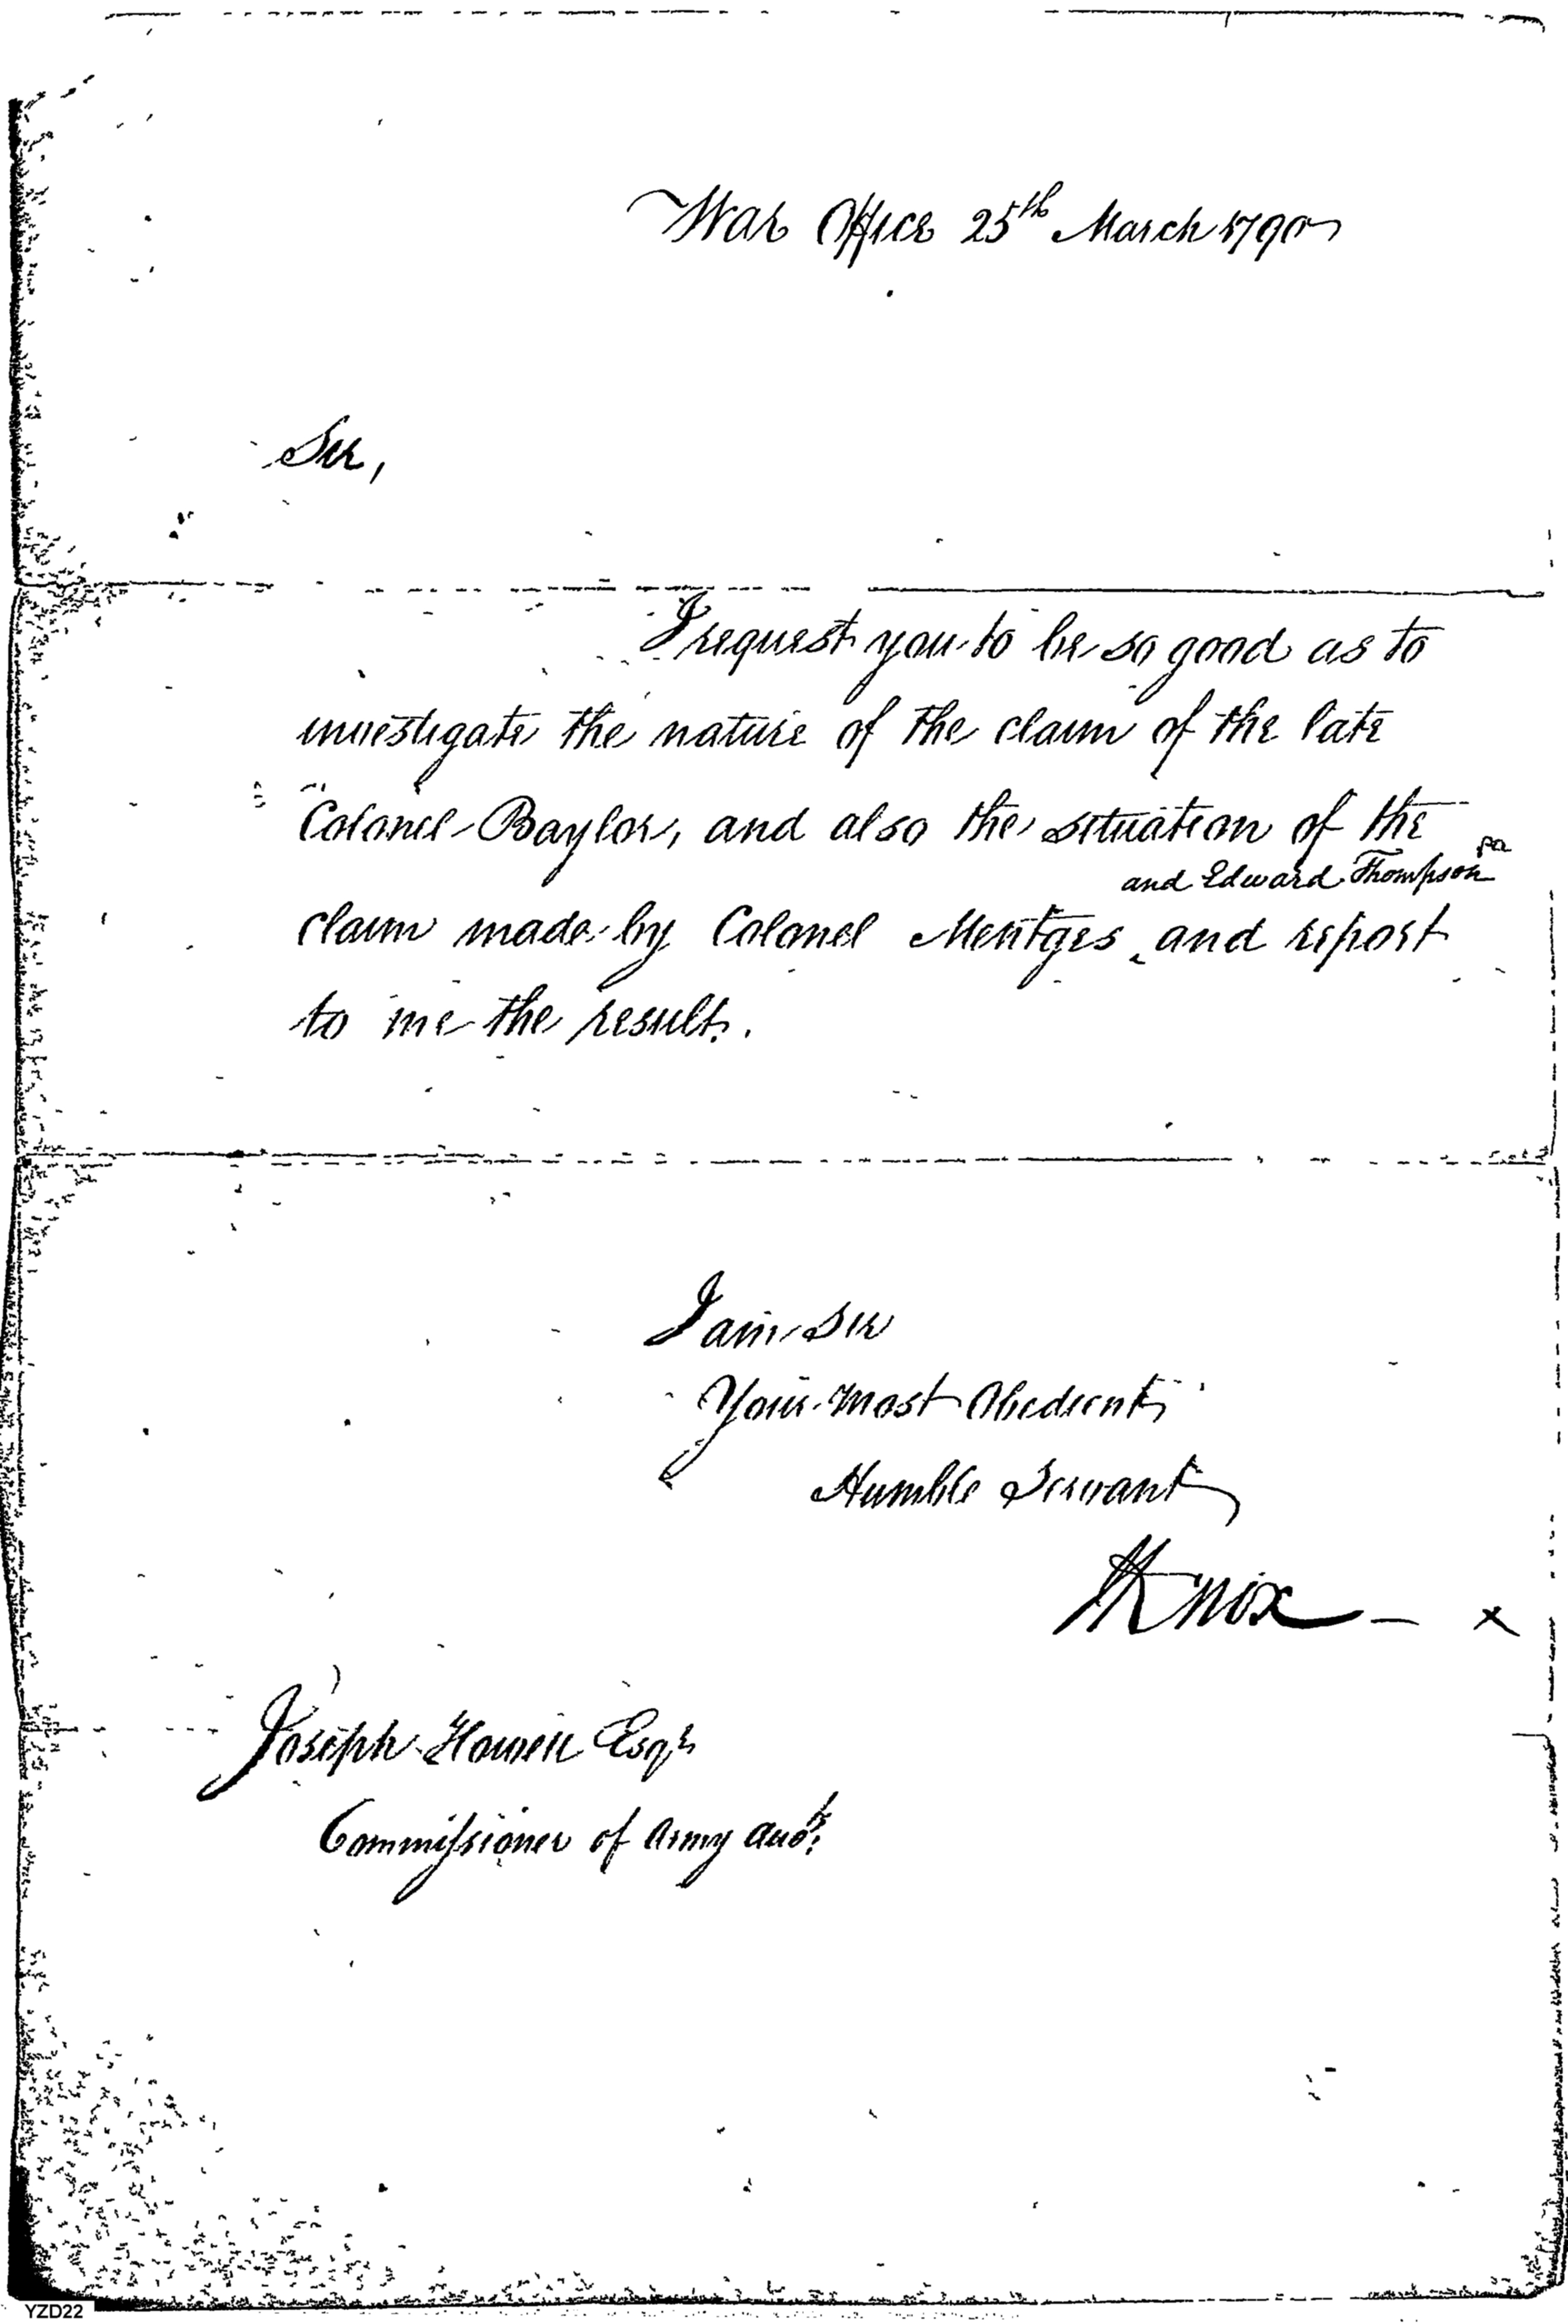 War Office 25th March 1790
Sir,
I request you to be so good as to
investigate the nature of the claim of the late
Colonel Baylor, and also the situation of the
and Edward Thompson
claim made by Colonel Mentges ‸ and report
to me the result.
I am Sir
Your Most Obedient
Humble Servant
HKnox — x
Joseph Howell Esqr
Commissioner of Army
YZD22